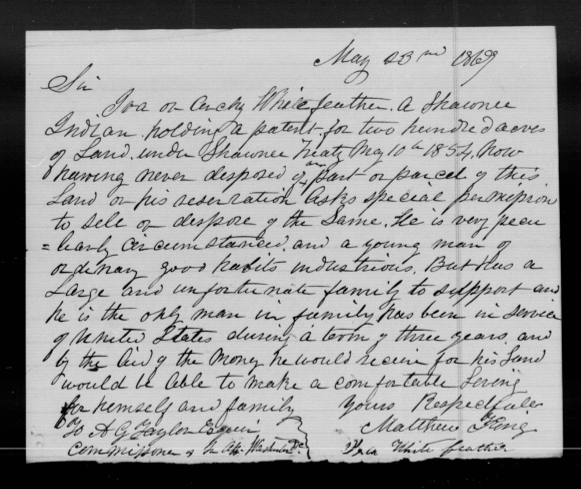 May 23rd 1869
Sir
Iva or Archy Whitefeather. a Shawnee
Indian holding a patent for two hundred acres
of Land. under Shawnee Treaty May 10th 1854, Now
having never disposed of any part or parcel of this
Land or his reservation Asks special permission
to sell or dispose of the Same. He is very pecu
=liarly circumstanced. and a young man of
ordinary good habits industrious. But has a
Large and unfortunate family to support and
he is the only man in family has been in service
of United States during a term of three years and
by the Aid of the Money he would receive for his Land
would be Able to make a comfortable Living
for himself and family
Yours Respectfully
To A G Taylor
Commissioner of In Aff. Washington DC
Matthew King
White feather